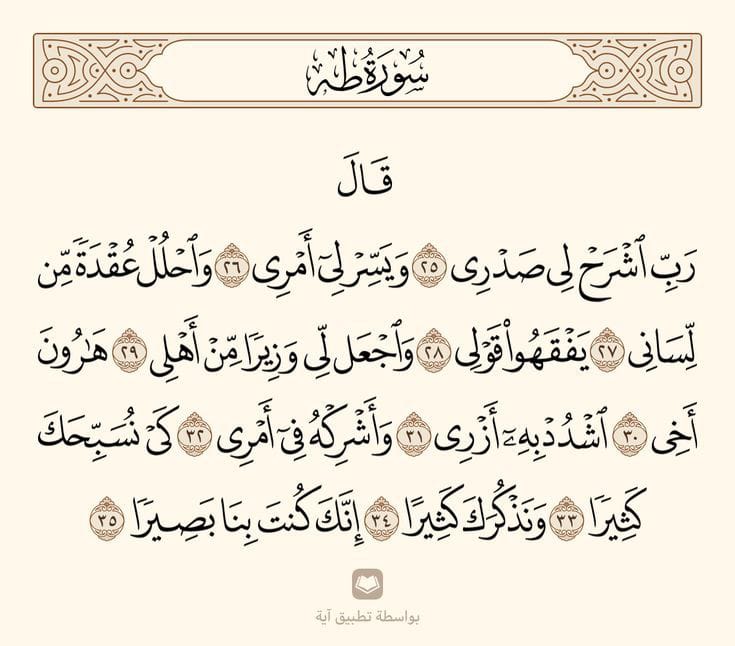 سُورَةُ طه
قَالَ
رَبِّ ٱشۡرَحۡ لِي صَدۡرِي ٢٥ وَيَسِّرۡ لِيٓ أَمۡرِي ٢٦ وَٱحۡلُلۡ عُقۡدَةٗ مِّن
لِّسَانِي ٢٧ يَفۡقَهُواْ قَوۡلِي ٢٨ وَٱجۡعَل لِّي وَزِيرٗا مِّنۡ أَهۡلِي ٢٩ هَٰرُونَ
أَخِي ٣٠ ٱشۡدُدۡ بِهِۦٓ أَزۡرِي ٣١ وَأَشۡرِكۡهُ فِيٓ أَمۡرِي ٣٢ كَيۡ نُسَبِّحَكَ
كَثِيرٗا ٣٣ وَنَذۡكُرَكَ كَثِيرًا ٣٤ إِنَّكَ كُنتَ بِنَا بَصِيرٗا ٣٥
بواسطة تطبيق آية